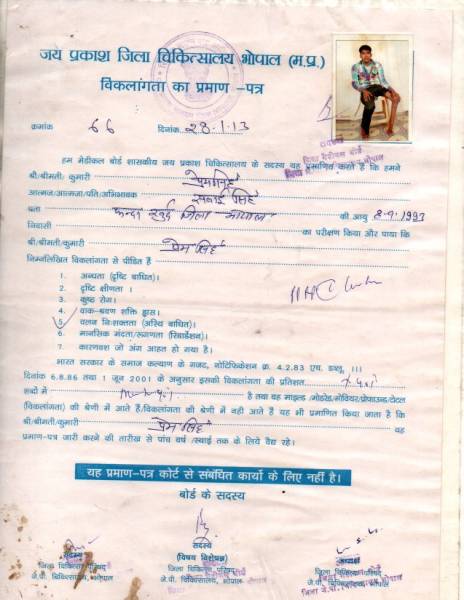 जय प्रकाश जिला चिकित्सालय भोपाल (म.प्र.)
विकलांगता का प्रमाण -पत्र
क्रमांक 66 दिनांक 28.1.13
हम मेडीकल बोर्ड शासकीय जय प्रकाश चिकित्सालय के सदस्य यह प्रमाणित करते है कि हमने
श्री/श्रीमती/ कुमारी प्रेमसिंह
आत्मज/आत्मजा/पति/अभिभावक सवाई सिंह
पता जिला भोपाल की आयु 8-9-1993
निवासी का परीक्षण किया और पाया कि
श्री/श्रीमती/कुमारी प्रेम सिंह
निम्नलिखित विकलांगता से पीडित है
1. अन्धता (दृष्टि बाधित)।
2. दृष्टि क्षीणता ।
3. कुष्ठ रोग।
4. वाक-श्रवण शक्ति ह्रास।
5. चलन निःशक्तता (अस्थि बाधित)।
6. मानसिक मंदता/रूग्णता (रिटार्डेशन)।
7. कारणवश जो अंग आहत हो गया है।
भारत सरकार के समाज कल्याण के गजट, नोटिफिकेशन क्र. 4.2.83 एच. डब्लू. ।।।
दिनांक 6.8.86 तथा 1 जून 2001 के अनुसार इसकी विकलांगता की प्रतिशत
शब्दों में है तथा यह माइल्ड /मोडरेड/सीवियर/प्रोफाउन्ड/टोटल
(विकलांगता) की श्रेणी में आते है/विकलांगता की श्रेणी में नही आते है यह भी प्रमाणित किया जाता है कि
श्री/श्रीमती/कुमारी प्रेम सिंह यह
प्रमाण-पत्र जारी करने की तारीख से पांच वर्ष /स्थाई तक के लिये वैद्य रहे।
यह प्रमाण-पत्र कोर्ट से संबंधित कार्यो के लिए नहीं है।
बोर्ड के सदस्य
सदस्य सदस्य अध्यक्ष
(विषय विशेषज्ञ)
जिला चिकित्सा परिषद जिला चिकित्सा परिषद जिला चिकित्सा परिषद
जे.पी. चिकित्सालय, भोपाल जे.पी. चिकित्सालय, भोपाल जे.पी. चिकित्सालय, भोपाल